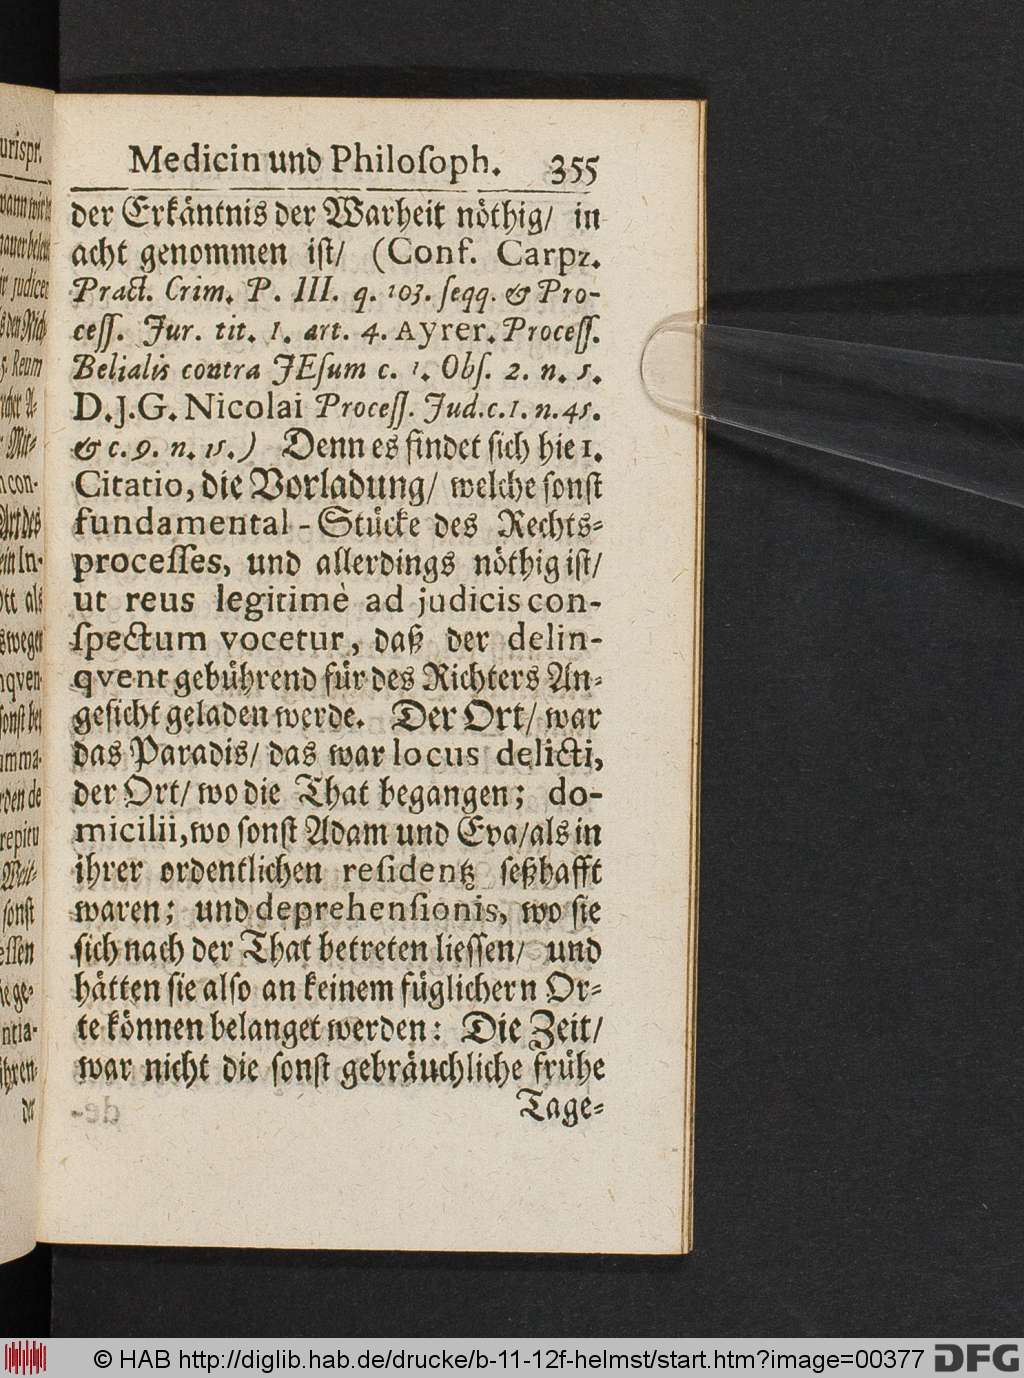 Medicin und Philoſoph. 355
der Erkäntnis der Warheit nöthig/ in
acht genommen iſt/ (Conf. Carpz.
Pract. Crim. P. III. q. 103. ſeqq. & Pro-
ceſſ. Jur. tit. 1. art. 4. Ayrer. Proceſſ.
Belialis contra JEſum c. 1. Obſ. 2. n. 5.
D.J.G. Nicolai Proceſſ. Jud. c. 1. n. 45.
& c. 9. n. 15.) Denn es findet ſich hie 1.
Citatio, die Vorladung/ welche ſonſt
fundamental-Stücke des Rechts-
proceſſes, und allerdings nöthig iſt/
ut reus legitimè ad judicis con-
ſpectum vocetur, daß der delin-
qvent gebührend für des Richters An-
geſicht geladen werde. Der Ort/ war
das Paradis/ das war locus delicti,
der Ort/ wo die That begangen; do-
micilii, wo ſonſt Adam und Eva/ als in
ihrer ordentlichen reſidentz ſeßhafft
waren; und deprehenſionis, wo ſie
ſich nach der That betreten lieſſen/ und
hätten ſie alſo an keinem füglichern Or-
te können belanget werden: Die Zeit/
war nicht die ſonſt gebräuchliche frühe
Tage-
© HAB http://diglib.hab.de/drucke/b-11-12f-helmst/start.htm?image=00377
DFG